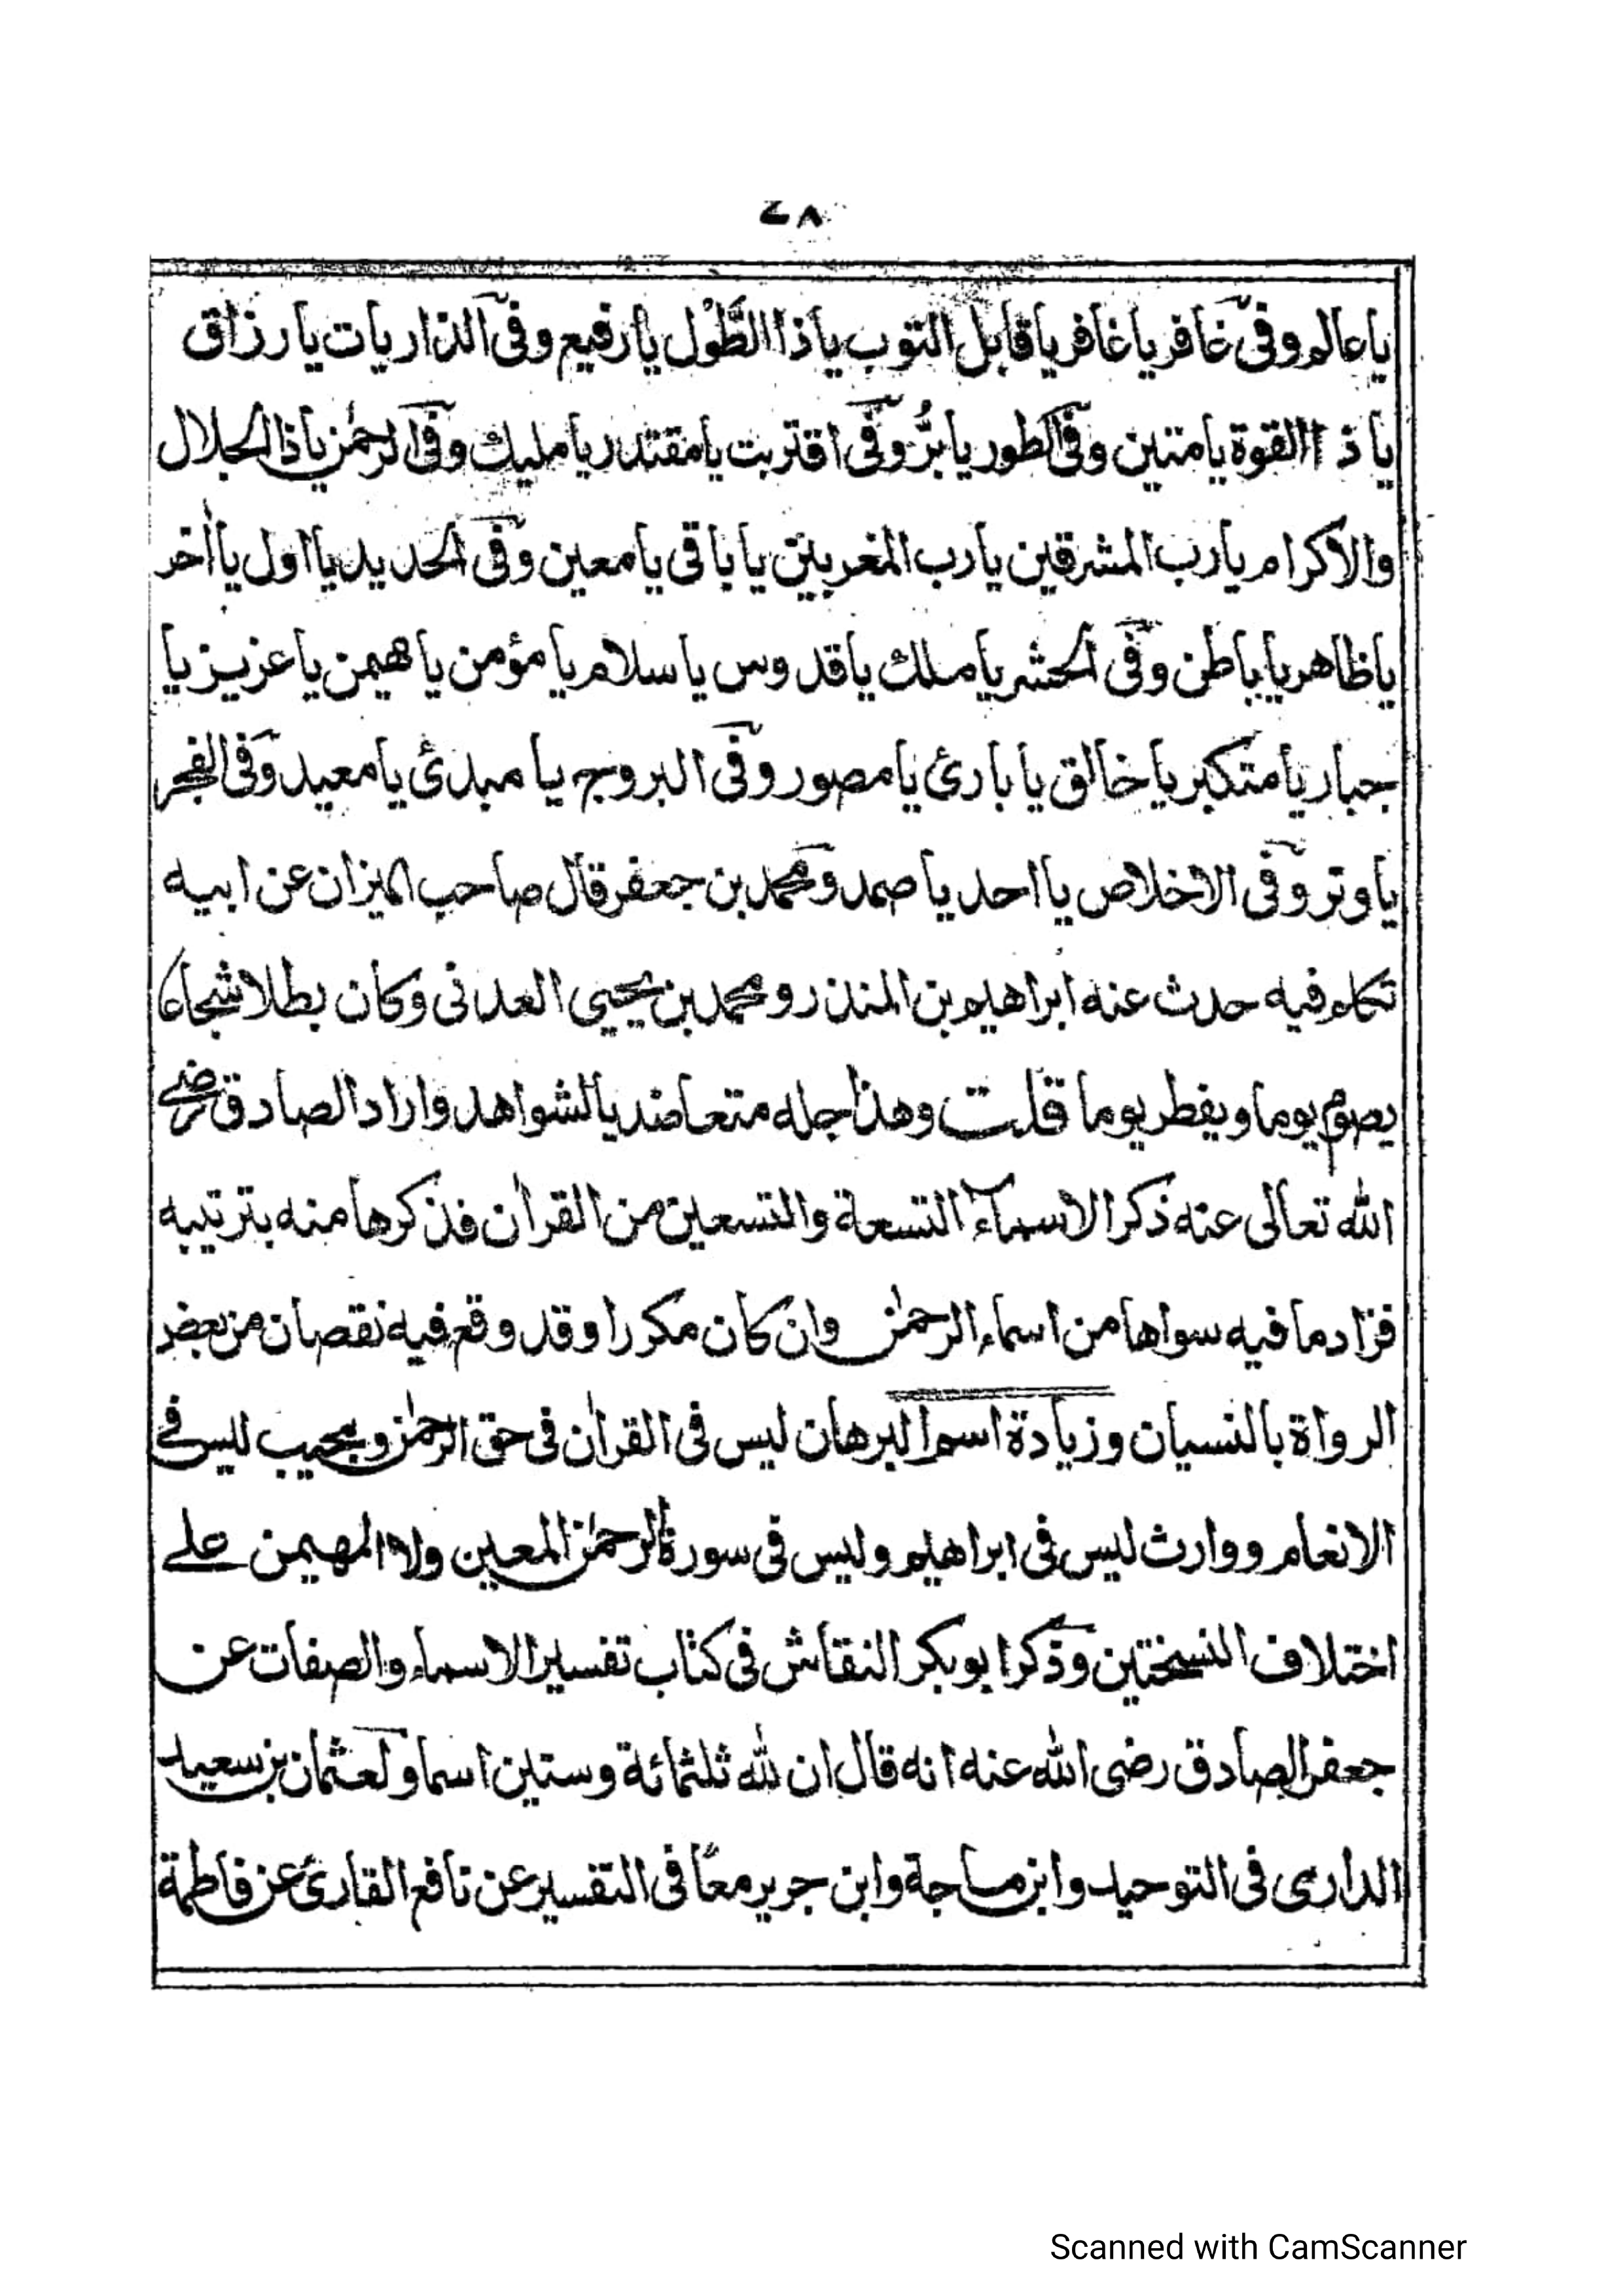 ٧٨
يا عالم وفى غافر يا غافر يا قابل التوب يا ذا الطَّوْل يا رفيع وفى الذاريات يا رزاق
يا ذا القوة يا متين وفى الطور يا برُّ وفى اقتربت يا مقتدر يا مليك وفى الرحمٰن يا ذا الجلال
والاكرام يا رب المشرقين يا رب المغربين يا باقى يا معين وفى الحديد يا اول يا اٰخر
يا ظاهر يا باطن وفى الحشر يا ملك يا قدوس يا سلام يا مؤمن يا هيمن يا عزيز يا
جبار يا متكبر يا خالق يا بارئ يا مصور وفى البروج يا مبدئ يا معيد وفى الفجر
يا وتر وفى الاخلاص يا احد يا صمد ومحمد بن جعفر قال صاحب الميزان عن ابيه
تكلم فيه حدث عنه ابراهيم بن المنذر ومحمد بن يحيى العدنى وكان بطلا شجاعا
يصوم يوما ويفطر يوما قلت وهذا جله متعاضد بالشواهد واراد الصادق رضى
الله تعالى عنه ذكر الاسماء التسعة والتسعين من القراٰن فذكرها منه بترتيبه
فزاد ما فيه سواها من اسماء الرحمٰن وان كان مكررا وقد وقع فيه نقصان من بعض
الرواة بالنسيان وزيادة اسم البرهان ليس فى القراٰن فى حق الرحمٰن ومجيب ليس فى
الانعام ووارث ليس فى ابراهيم وليس فى سورة الرحمٰن المعين ولا المهيمن على
اختلاف النسختين وذكر ابو بكر النقاش فى كتاب تفسير الاسماء والصفات عن
جعفر الصادق رضى الله عنه انه قال ان لله ثلثمائة وستين اسما ولعثمان بن سعيد
الدارى فى التوحيد وابن ماجة وابن جرير معًا فى التفسير عن نافع القارئ عن فاطمة
Scanned with CamScanner